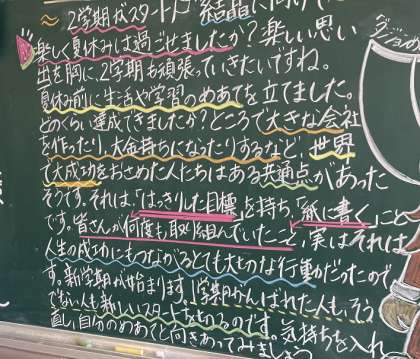 2学期がスタート! 結晶に向けて
楽しく夏休みは過ごせましたか?楽しい思い
出を胸に、2学期も頑張っていきたいですね。
夏休み前に生活や学習のめあてを立てました。
どのくらい達成できましたか?ところで大きな会社
を作ったり、大金持ちになったりするなど、世界
で大成功をおさめた人たちはある共通点があった
そうです。それは、「はっきりした目標」を持ち、「紙に書く」こと
です。皆さんが何度も取り組んでいたこと、実はそれは
人生の成功にもつながるとても大切な行動だったので
す。新学期が始まります。1学期がんばれた人も、そう
でない人も新しいスタートをきるのです。気持ちを入れ
直し自分のめあてと向きあってみましょう